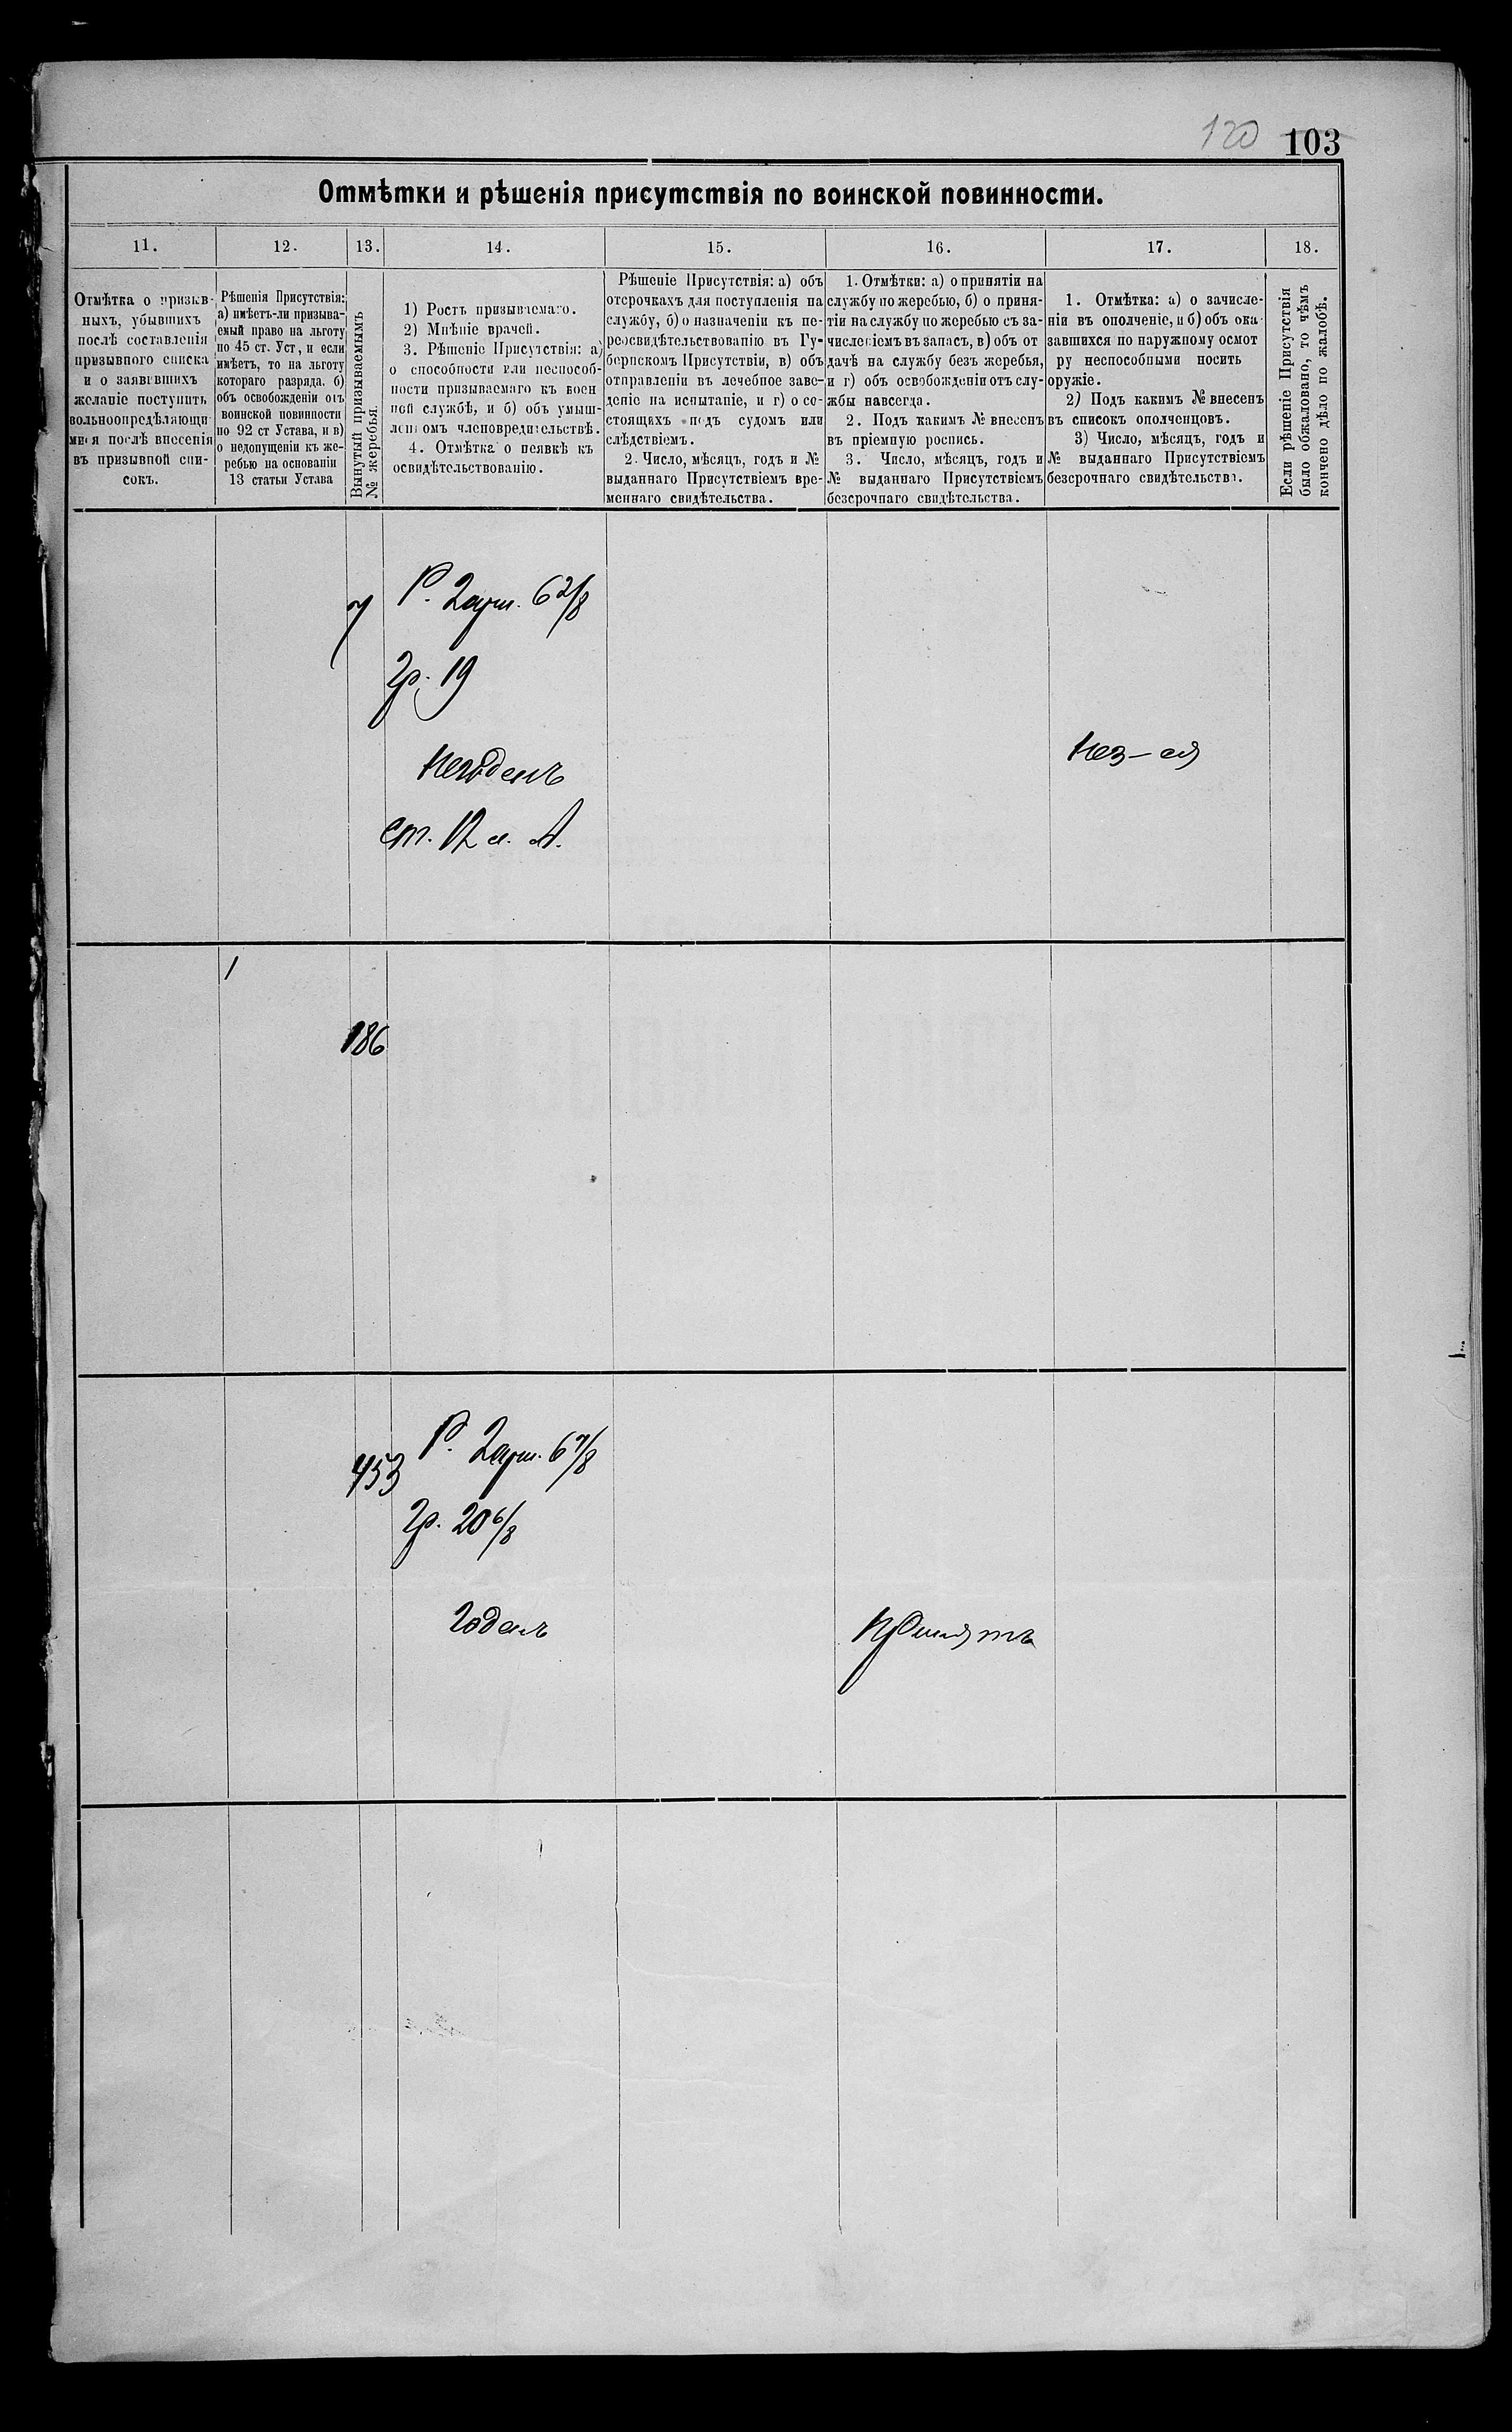 120 103
Отмѣтки и рѣшенія присутствія по воинской повинности.
11.
12.
13.
14.
15.
16.
17.
18.
Отмѣтка о призыв-
ныхъ, убывшихъ
послѣ составленія
призывного списка
и о заявившихъ
желаніе поступить
вольноопредѣляющи
мися послѣ внесенія
въ призывной спи-
сокъ.
Рѣшенія Присутствія:
а) имѣетъ-ли призыва-
емый право на льготу
по 45 ст. Уст, и если
имѣетъ, то на льготу
котораго разряда. б)
объ освобожденіи отъ
воинской повинности
по 92 ст Устава, и в)
о недопущеніи къ же-
ребью на основаніи
13 статьи Устава
Вынутый призываемымъ
№ жеребья.
1) Ростъ призываемаго.
2) Мнѣніе врачей.
3. Рѣшеніе Присутствія: а)
о способности или неспособ-
ности призываемаго къ воен
ной службѣ, и б) объ умыш-
леномъ членовредительствѣ.
4. Отмѣтка о неявкѣ къ
освидѣтельствованію.
Рѣшеніе Присутствія: а) объ
отсрочкахъ для поступленія на
службу, б) о назначеніи къ пе-
реосвидѣтельствованію въ Гу-
бернскомъ Присутствіи, в) объ
отправленіи въ лечебное заве-
деніе на испытаніе, и г) о со-
стоящихъ подъ судомъ или
слѣдствіемъ.
2. Число, мѣсяцъ, годъ и №
выданнаго Присутствіемъ вре-
меннаго свидѣтельства.
1. Отмѣтки: а) о принятіи на
службу по жеребью, б) о приня-
тіи на службу по жеребью съ за-
численіемъ въ запасъ, в) объ от
дачѣ на службу безъ жеребья,
и г) объ освобожденіи отъ слу-
жбы навсегда.
2. Подъ какимъ № внесенъ
въ пріемную роспись.
3. Число, мѣсяцъ, годъ и
№ выданнаго Присутствіемъ
безсрочнаго свидѣтельства.
1. Отмѣтка: а) о зачисле-
ніи въ ополченіе, и б) объ ока
завшихся по наружному осмот
ру неспособными носить
оружіе.
2) Подъ какимъ № внесенъ
въ списокъ ополченцовъ.
3) Число, мѣсяцъ, годъ и
№ выданнаго Присутствіемъ
безсрочнаго свидѣтельства.
Если рѣшеніе Присутствія
было обжаловано, то чѣмъ
кончено дѣло по жалобѣ.
7
Р. 2 арш. 6 2/8
Гр. 19
Негоденъ
ст. 12 л. А.
186
453
Р. 2 арш. 6 7/8
Гр. 20 6/8
Годенъ
Принятъ